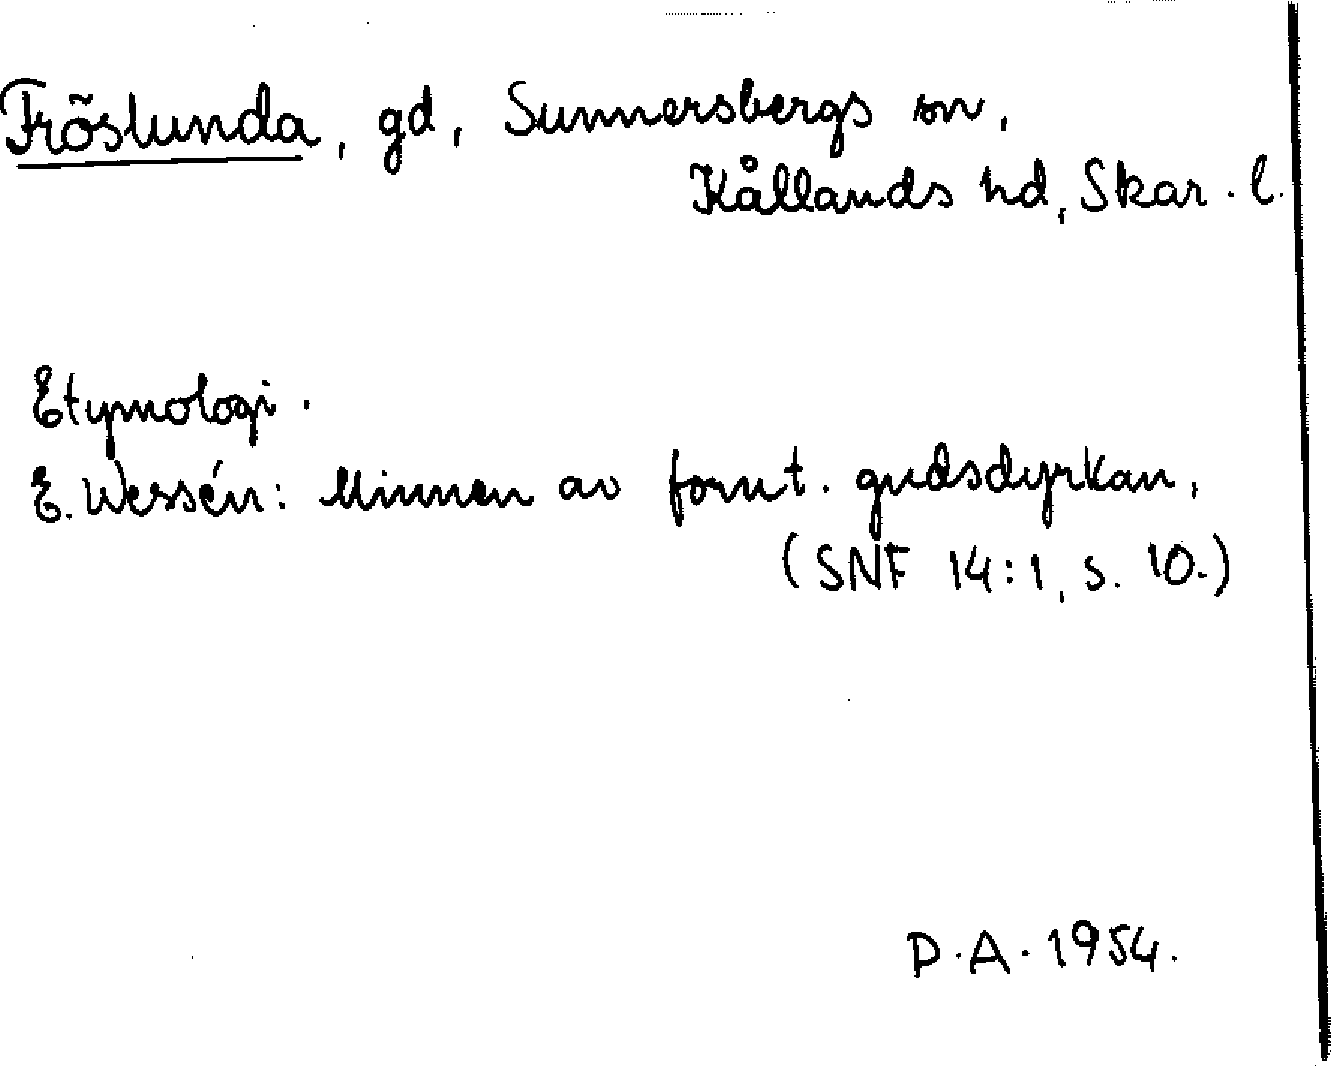 Fröslunda, gd, Sunnersbergs sn,
Kållands hd, Skar. l.
Etymologi.
E. Wessén: Minnen av fornt. gudsdyrkan,
(SNF 14:1, s. 10.)
D.A. 1954.